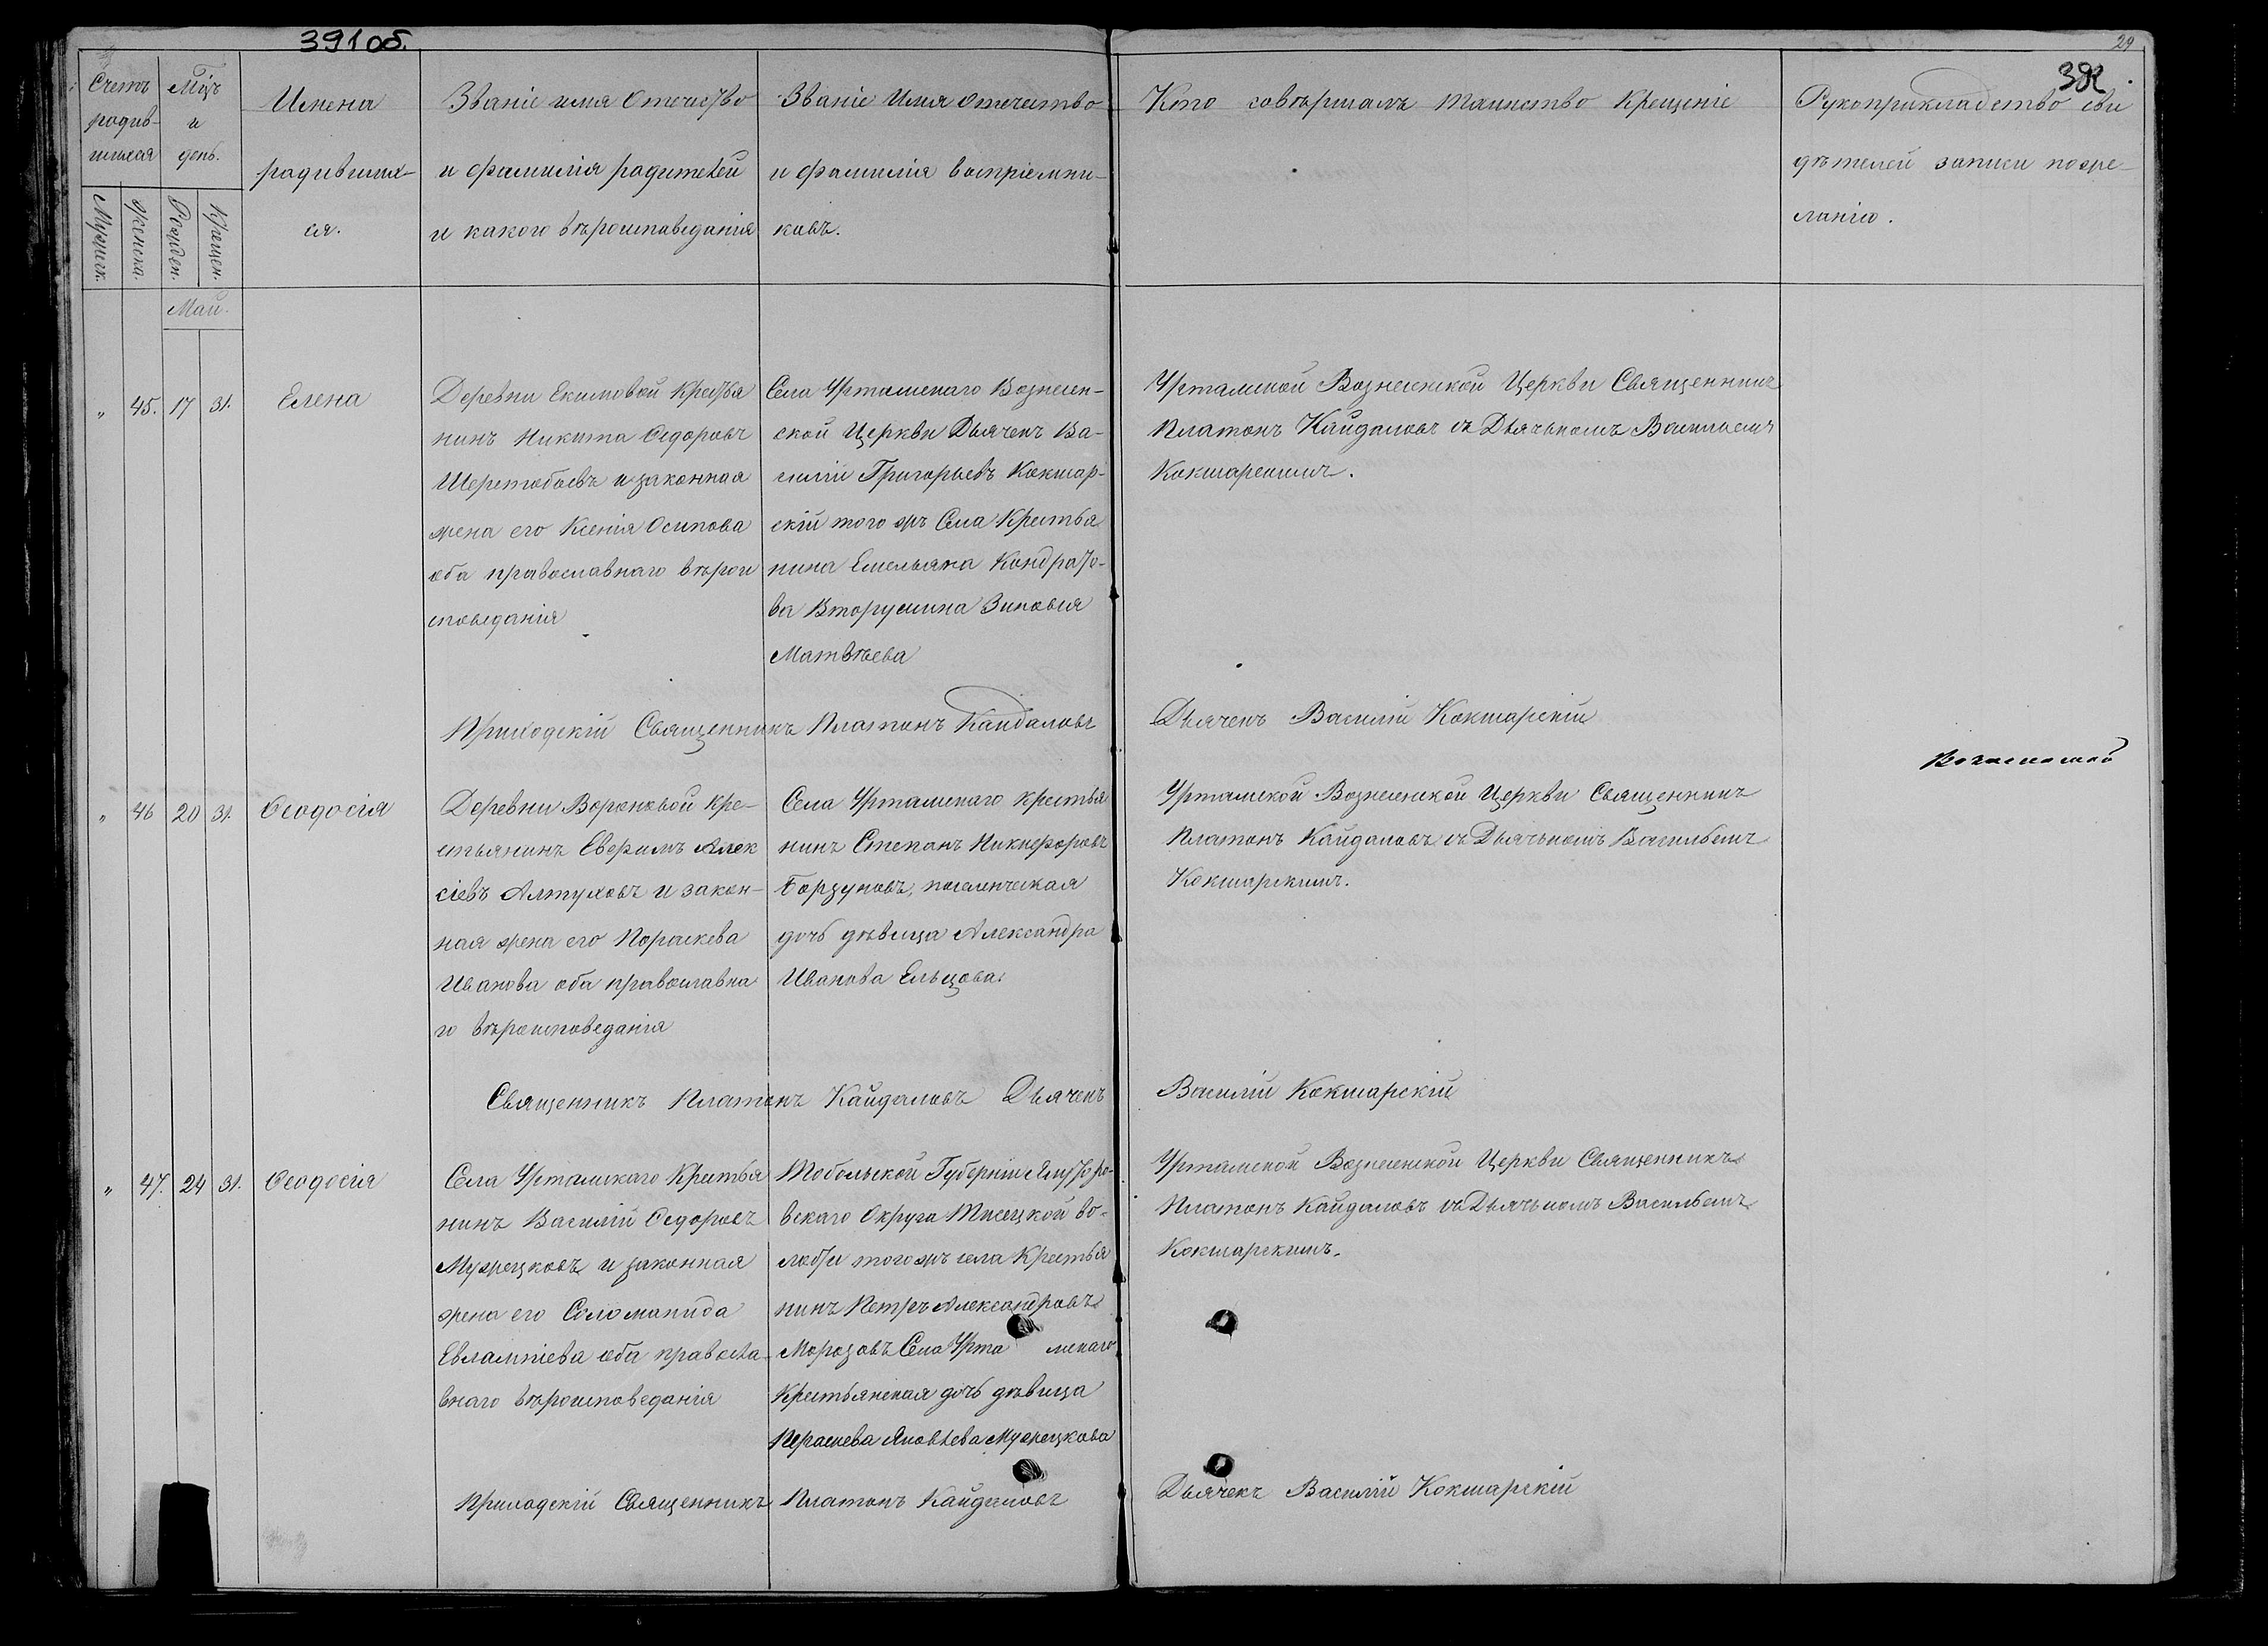 391 об.
29
392.
Счетъ
родив-
шихся
Мужеск.
Женска.
М-цъ
и
день.
Рожден.
Крещен.
Имена
родивших-
ся.
Званіе имя Отечество
и фамилія родителей
и какого вѣроисповеданія
Званіе Имя отечество
и фамилія воспріемни-
ковъ.
Кто совѣршалъ таинство крещеніе
Рукоприкладство сви
дѣтелей записи по же-
ланію.
Май.
" 45. 17 31.
Елена
Деревни Екимовой Крестья
нинъ Никита Ѳедоровъ
Шерстобоевъ и законная
жена его Ксенія Осипова
оба православнаго вѣрои
споведанія
Села Уртамскаго Вознесен-
ской Церкви Дьячекъ Ва-
силій Григорьевъ Кокшар-
скій того жъ Села Крестья
нина Емельяна Кондрато-
ва Вторушина Зиновія
Матвѣева
Уртамской Вознесенской Церкви Священникъ
Платонъ Кайдаловъ съ Дьячькомъ Васильемъ
Кокшарскимъ.
Приходскій Священникъ Платонъ Кайдаловъ
Дьячекъ Василій Кокшарскій
" 46 20 31.
Ѳеодосія
Деревни Вороновой Кре-
стьянинъ Еверимъ Алек
сіевъ Алтуховъ и закон-
ная жена его Пораскева
Иванова оба православна
го вѣроисповеданія
Села Уртамскаго крестья
нинъ Степанъ Никифоровъ
Борзуновъ, поселенческая
дочь дѣвица Александра
Иванова Ельцова.
Уртамской Вознесенской Церкви Священникъ
Платонъ Кайдаловъ съ Дьячькомъ Васильемъ
Кокшарскимъ.
Священникъ Платонъ Кайдаловъ Дьячекъ
Василій Кокшарскій
" 47. 24 31.
Ѳеодосія
Села Уртамскаго Крестья
нинъ Василій Ѳедоровъ
Мужецковъ и законная
жена его Соломанида
Евлампіева оба правосла-
внаго вѣроисповеданія
Тобольской Губерніи Ялуторо-
вскаго Округа Тисецкой во-
лости того жъ села Крестья
нинъ Петръ Александровъ
Морозовъ Села Урта мскаго
Крестьянская дочь дѣвица
Пераскева Яковлева Мужецкова
Уртамской Вознесенской Церкви Священникъ
Платонъ Кайдаловъ съ Дьячькомъ Васильемъ
Кокшарскимъ.
Приходскій Священникъ Платонъ Кайдаловъ
Дьячекъ Василій Кокшарскій